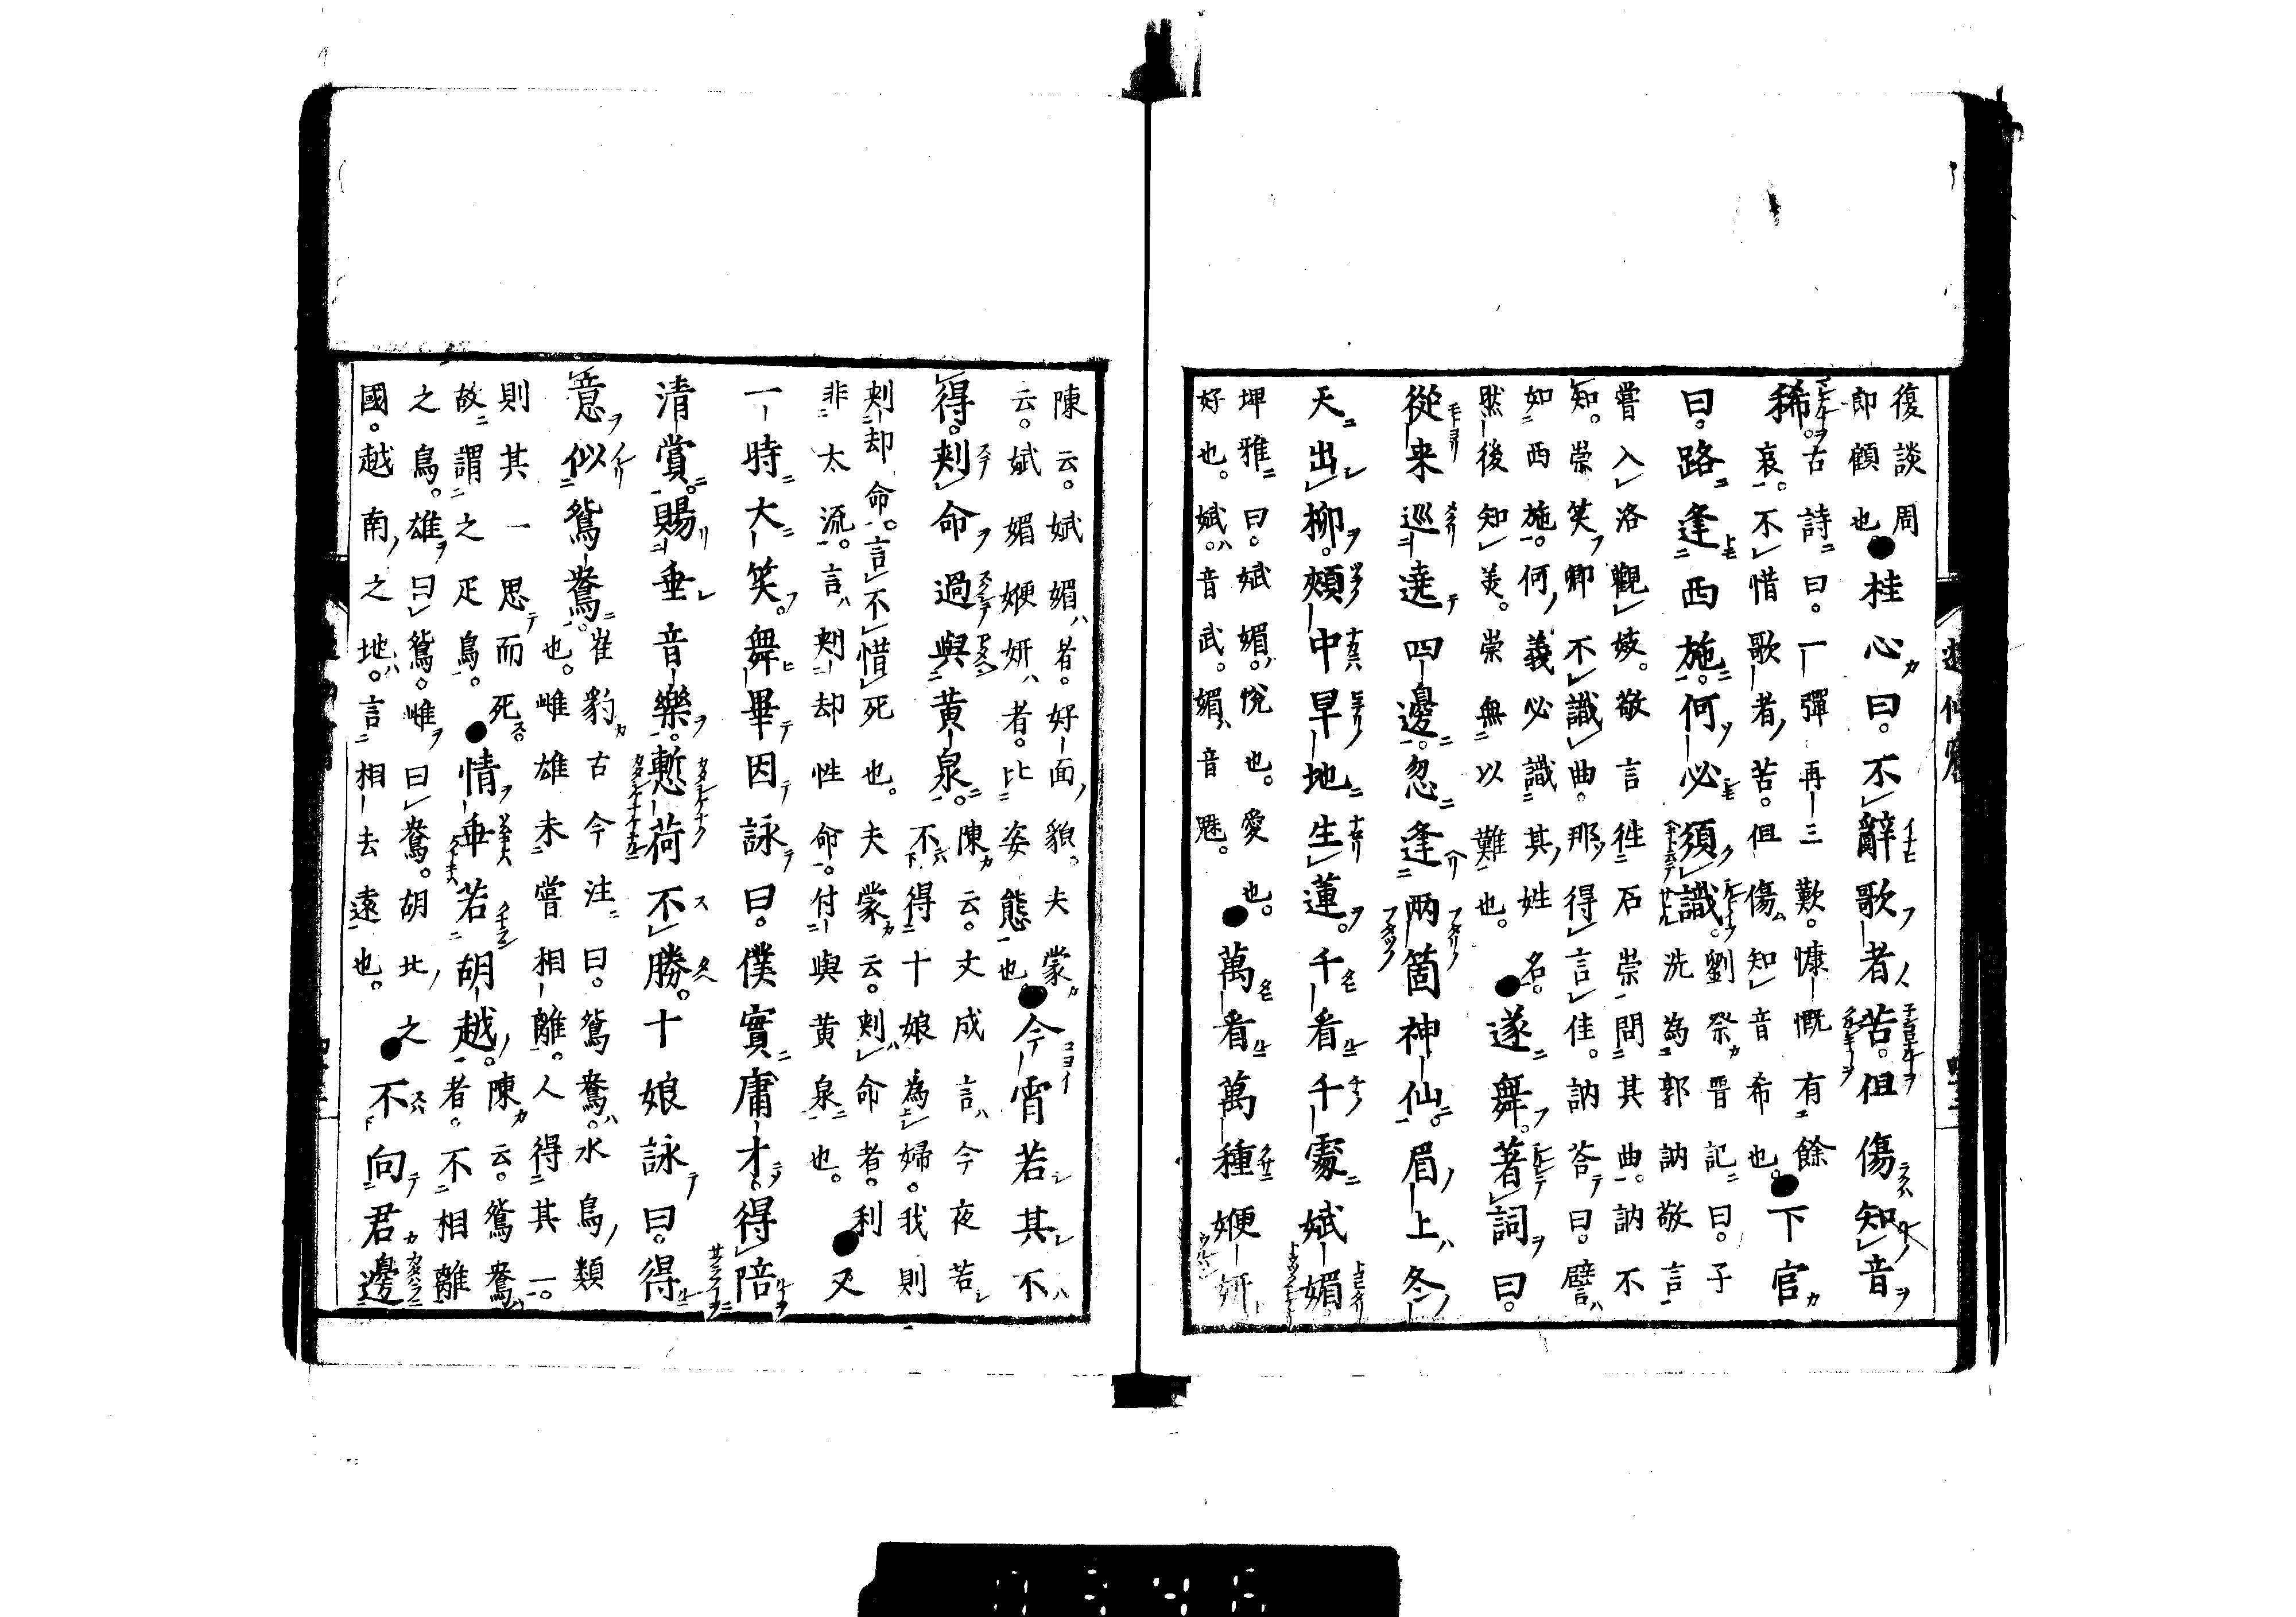 復談周
即顧也●桂心曰。不辭歌者苦。但傷知音
稀。古詩曰。一彈再三歎。慷慨有餘
哀。不惜歌者苦。但傷知音希也。●下官
曰。路逢西施。何必須識。劉祭晋記曰。子
洗為郭訥敬言
嘗入洛觀妓。敬言徃石崇問其曲。訥不
知。崇笑卿不識曲。那得言佳。訥荅曰。譬
如西施。何義必識其姓名。●遂舞。著詞曰。
然後知美。崇無以難也。
從来巡遶四邊。忽逢兩箇神仙。眉上冬
天出柳。頰中早地生蓮。千看千處娬媚。
埤雅曰。娬媚。悅也。愛也。●萬看萬種㛹妍
好也。娬。音武。媚。音魅。
陳云。娬媚者。好面貌。夫蒙
云。娬媚㛹妍者。比姿態也。●今宵若其不
得。刾命過與黄泉。陳云。丈成言。今夜若
不得十娘為婦。我則
刾却命。言不惜死也。夫蒙云。刾命者。利
非太流。言刾却性命。付與黄泉也。●又
一時大笑。舞畢因詠曰。僕實庸才。得陪
清賞。賜垂音樂。慙荷不勝。十娘詠曰。得
意似鴛鴦。崔豹古今注曰。鴛鴦。水鳥類
也。雌雄未嘗相離。人得其一。
則其一思而死。陳云。鴛鴦
故謂之疋鳥。●情乖若胡越。者。不相離
之鳥。雄曰鴛。雌曰鴦。胡北之
國。越南之地。言相去遠也。●不向君邊